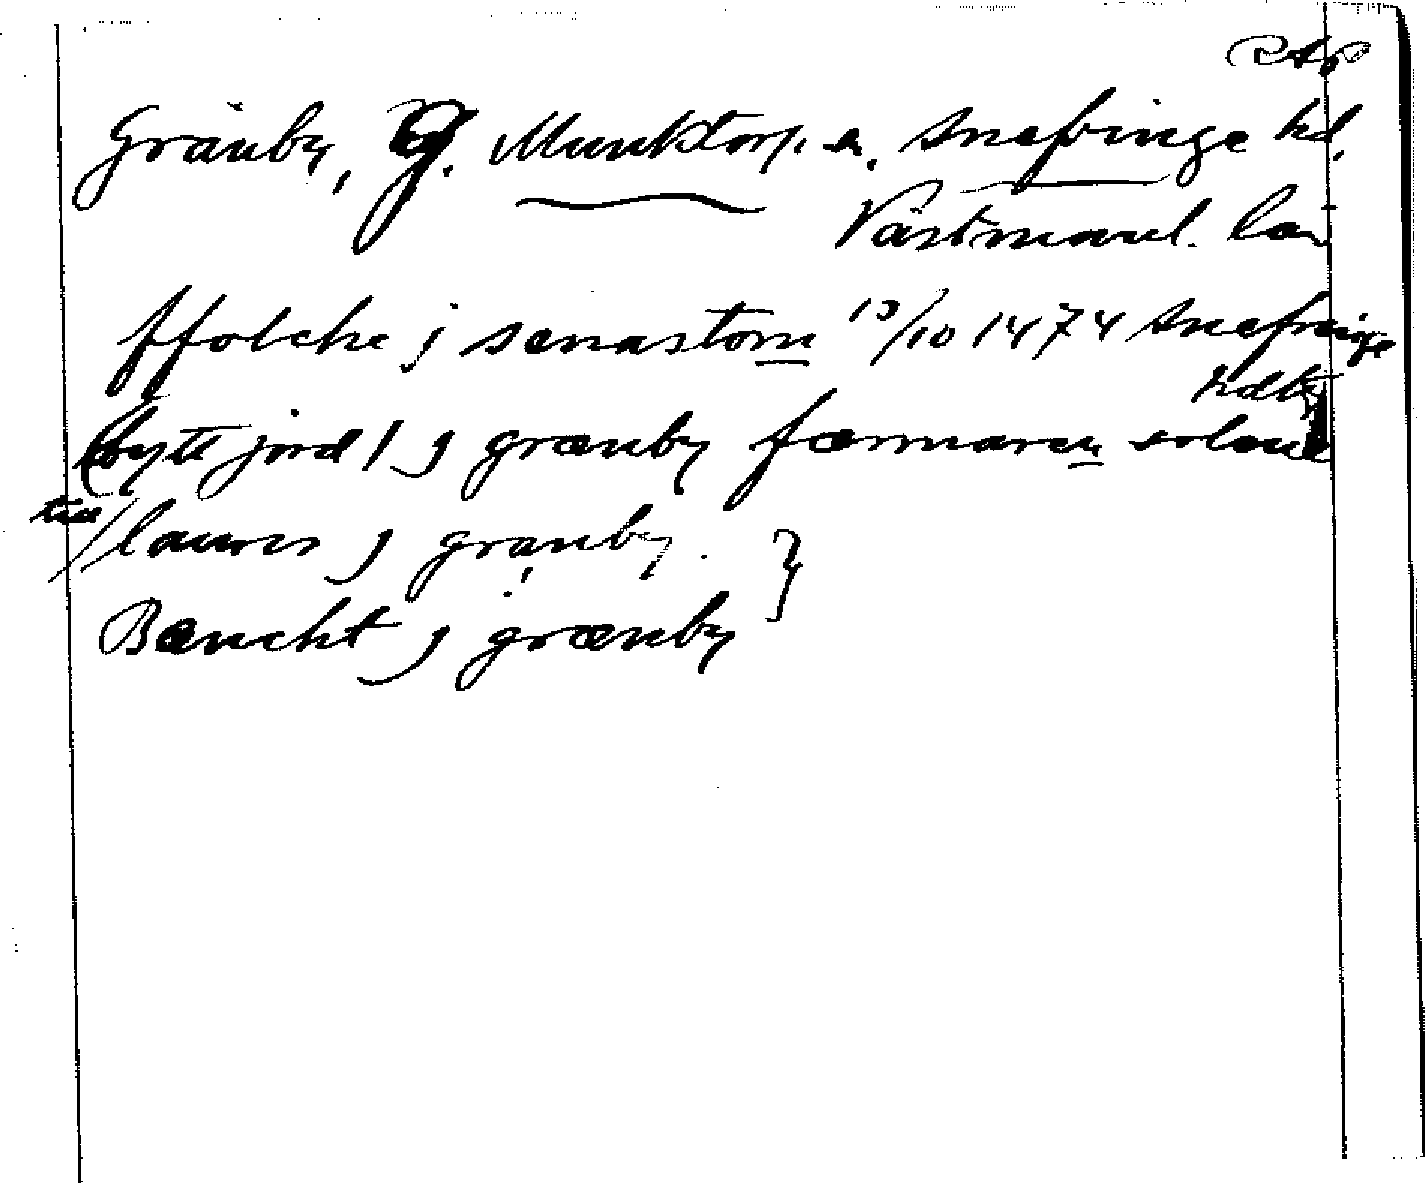 RAp
Gränby, Munktorp sn. Snefringe hd.
Västmanl. län
ffolche j senastom 13/10 1474 Snefringe
hdtg
(bytt jord/ j grænby færmaren solaue
till
/laurns j granby. }
Bæncht j grænby